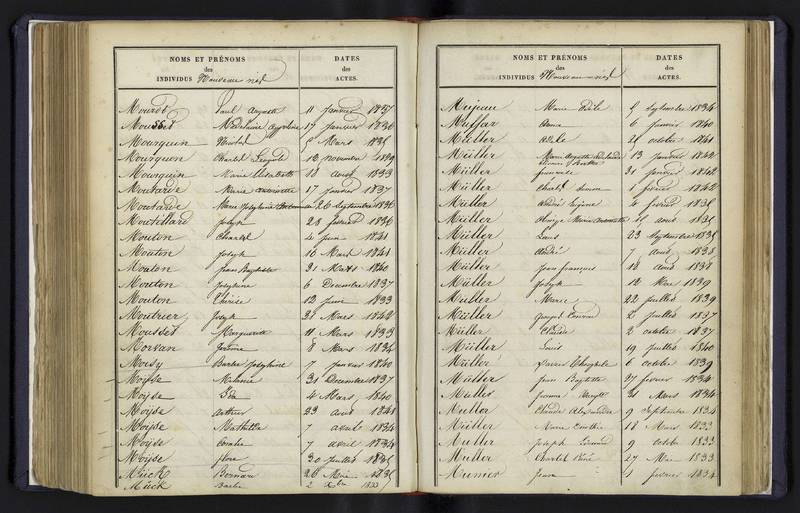 NOMS ET PRÉNOMS
des
INDIVIDUS Nouveau nés
DATES
des
ACTES.
Mourot Paul Auguste 11 janvier 1837
Mousset 17 janvier 1836
Mourquin Nicolas 5 Mars 1835
Mourquon Charles Léopold 12 novembre 1839
Mourquin Marie Elisabeth 18 août 1833
Moutarde Marie 17 janvier 1837
Moutarde Marie Joséphine 26 septembre 1836
Moutillard Joseph 28 février 1836
Mouton Charles 4 juin 1841
Mouton Joseph 16 Mars 1841
Mouton Jean Baptiste 31 Mars 1840
Mouton Joséphine 6 Décembre 1837
Mouton Thérèse 12 juin 1833
Moutrier Joseph 31 Mars 1842
Mousset Marguerite 11 Mars 1833
Morvan 8 Mars 1834
Moisy Barbe Joséphine 7 janvier 1840
Moÿse Mélanie 31 Décembre 1837
Moÿse Ida 4 Mars 1840
Moÿse Arthur 23 août 1841
Moÿse Mathilde 7 avril 1834
Moÿse 7 avril 1834
Moÿse flore 30 juillet 1835
Mück Bernard 26 1835
Mück Barbe 2 Xbre 1833
NOMS ET PRÉNOMS
des
INDIVIDUS Nouveau nés
DATES
des
ACTES.
Mujeau Marie Odile 5 septembre 1834
Muffar Anna 6 janvier 1840
Müller Odile 25 octobre 1841
Müller Marie Auguste 13 janvier 1842
Müller 31 janvier 1842
Müller Charles Simon 1 février 1842
Müller André Eugène 4 février 1835
Müller Marie 25 août 1835
Müller Louis 23 septembre 1835
Müller André 7 août 1838
Müller Jean françois 18 août 1838
Müller Joseph 12 Mai 1839
Muller Marie 22 juillet 1839
Müller Joseph 2 juillet 1837
Müller 2 octobre 1837
Müller Louis 19 juillet 1840
Müller Xavier Théophile 6 octobre 1839
Müller Jean Baptiste 27 février 1834
Müller 31 Mars 1834
Muller Claude Alexandre 9 septembre 1834
Müller Marie 18 Mars 1833
Muller Joseph 9 octobre 1833
Muller Charles René 27 Mai 1833
Munier 1 février 1834